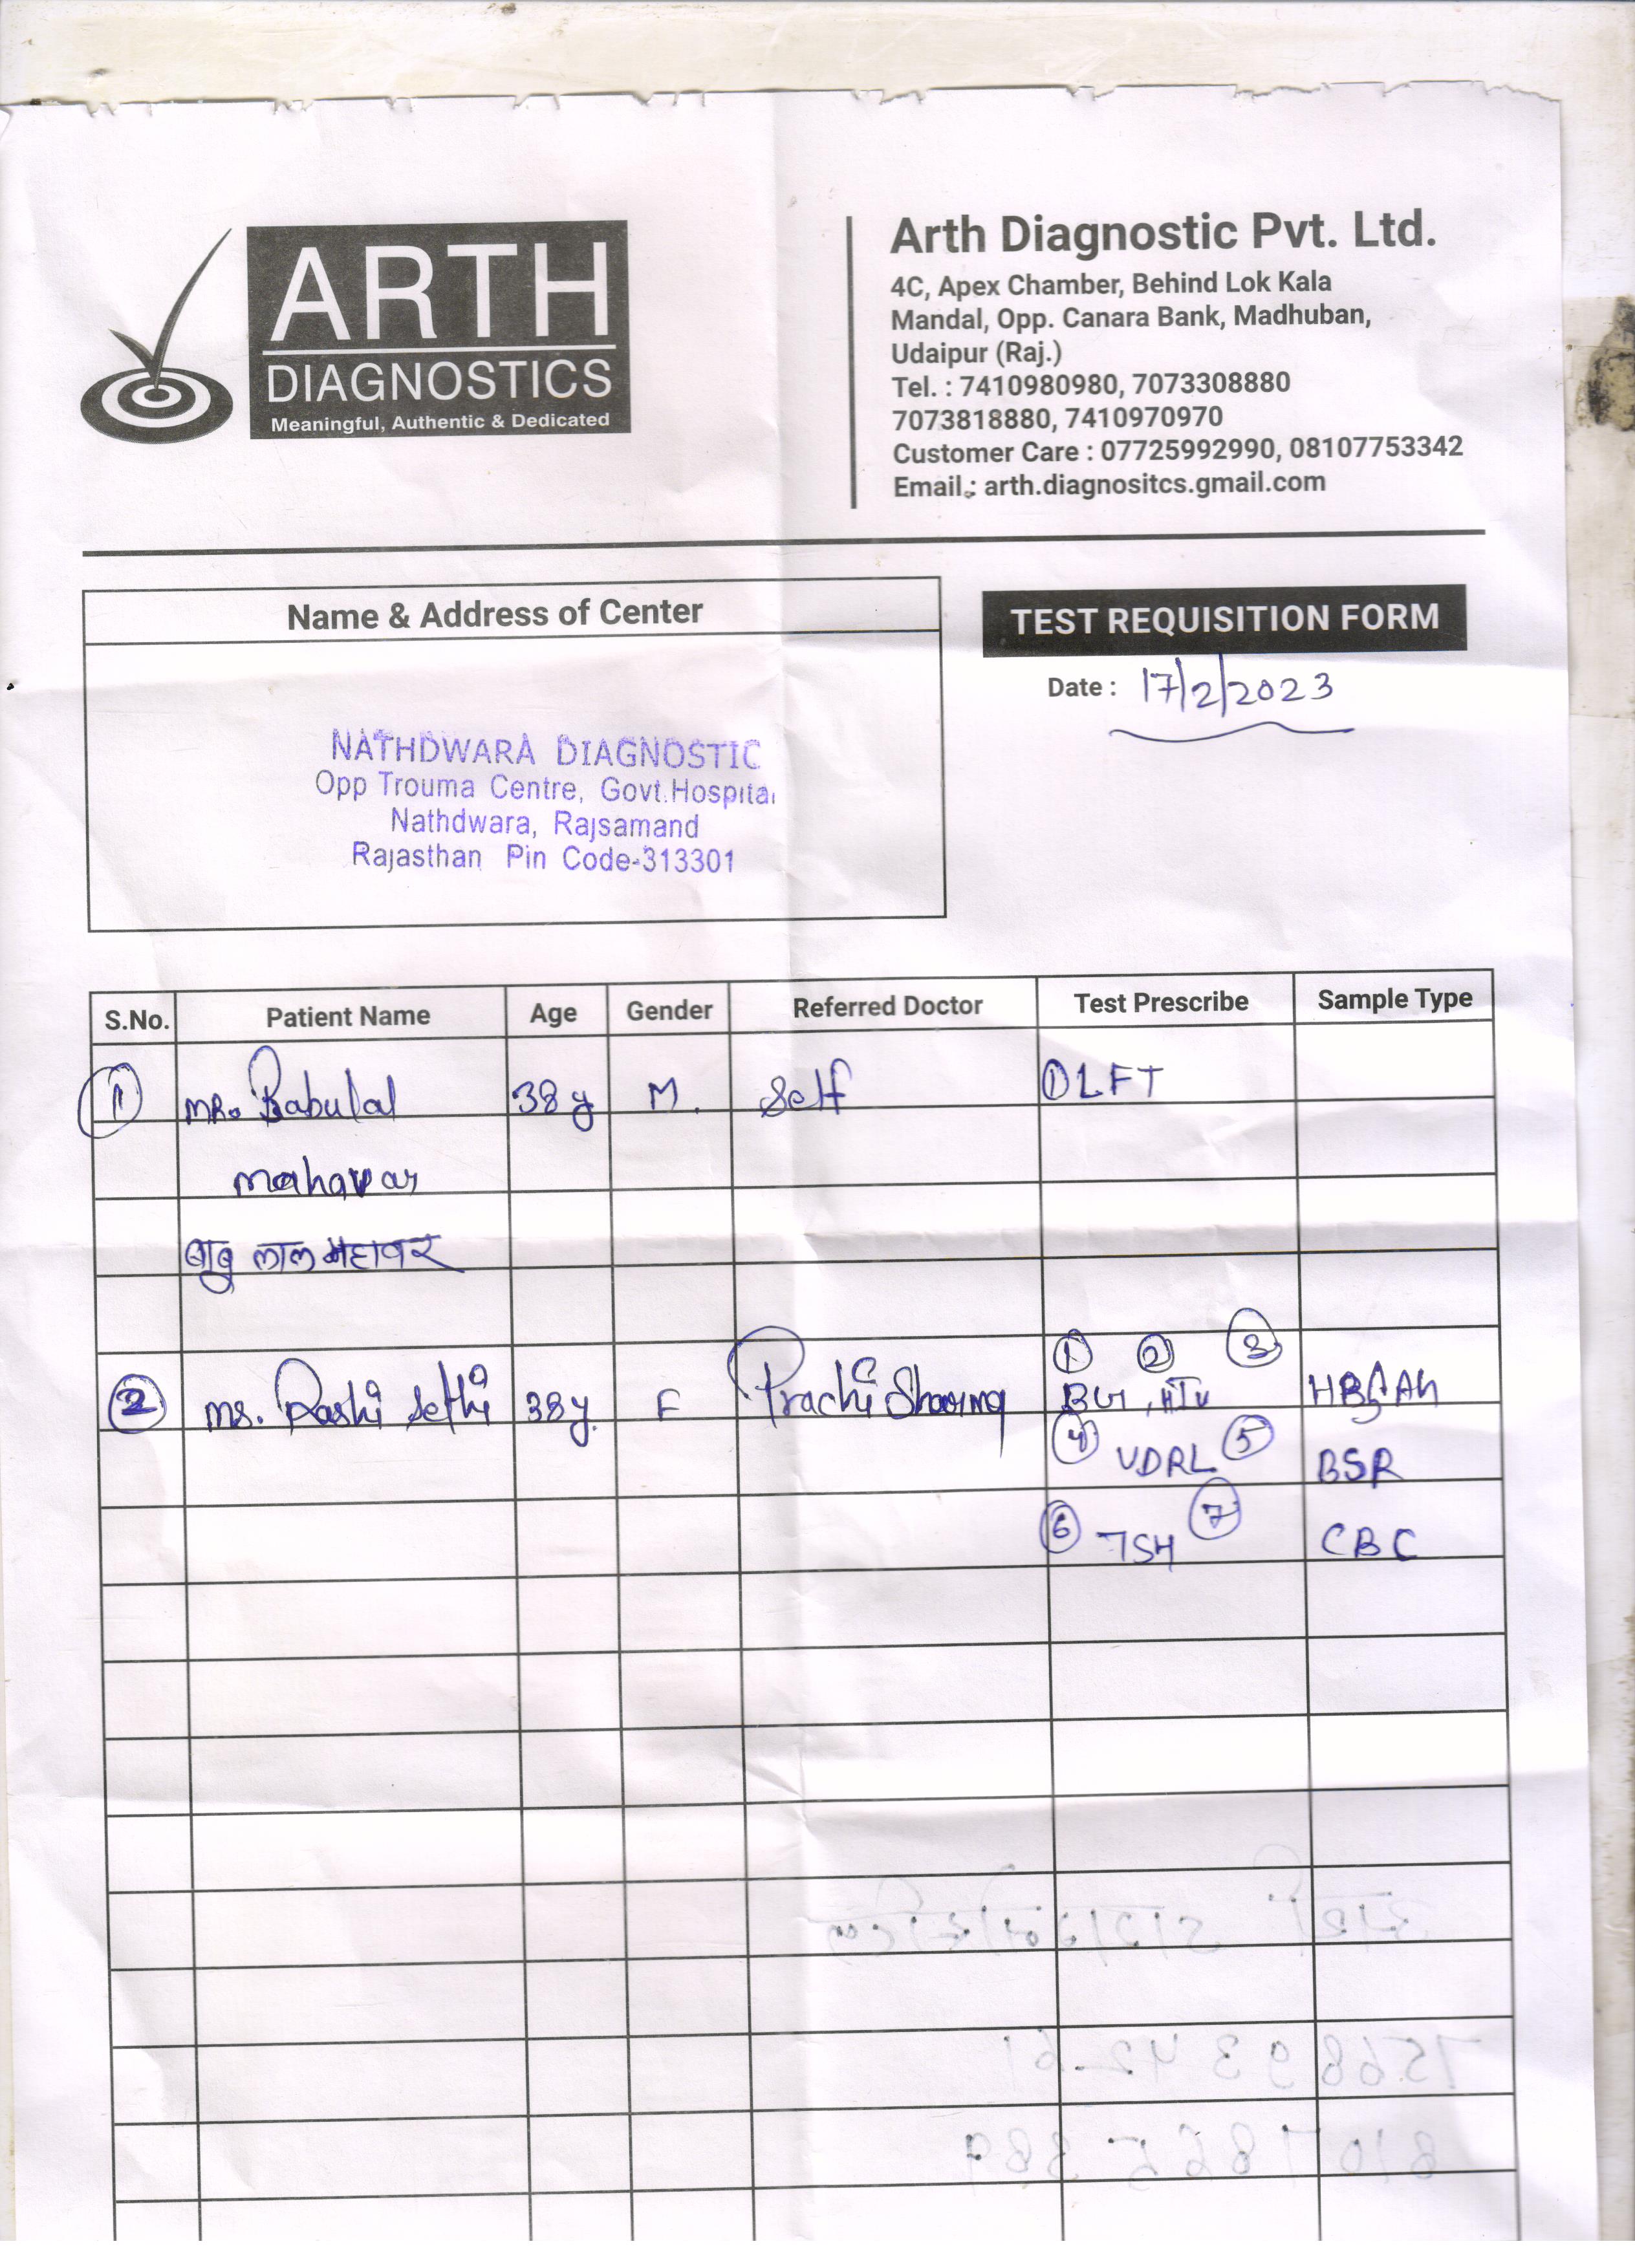 ARTH
DIAGNOSTICS
Meaningful, Authentic & Dedicated
Arth Diagnostic Pvt. Ltd.
4C, Apex Chamber, Behind Lok Kala
Mandal, Opp. Canara Bank, Madhuban,
Udaipur (Raj.)
Tel. : 7410980980, 7073308880
7073818880, 7410970970
Customer Care : 07725992990, 08107753342
Email : arth.diagnositcs.gmail.com
Name & Address of Center
TEST REQUISITION FORM
Date : 17/2/2023
NATHDWARA DIAGNOSTIC
Opp Trouma Centre, Govt.Hospital
Nathdwara, Rajsamand
Rajasthan Pin Code-313301
S.No. Patient Name Age Gender Referred Doctor Test Prescribe Sample Type
1 MR. Babulal 38 y M. Self ① LFT
mahavar
बाबु लाल महावर
① ② ③
2 ms. Rashi Sethi 38 y. F Prachi Sharma BG, HIV HBsAg
④ VDRL ⑤ BSR
⑥ TSH ⑦ CBC